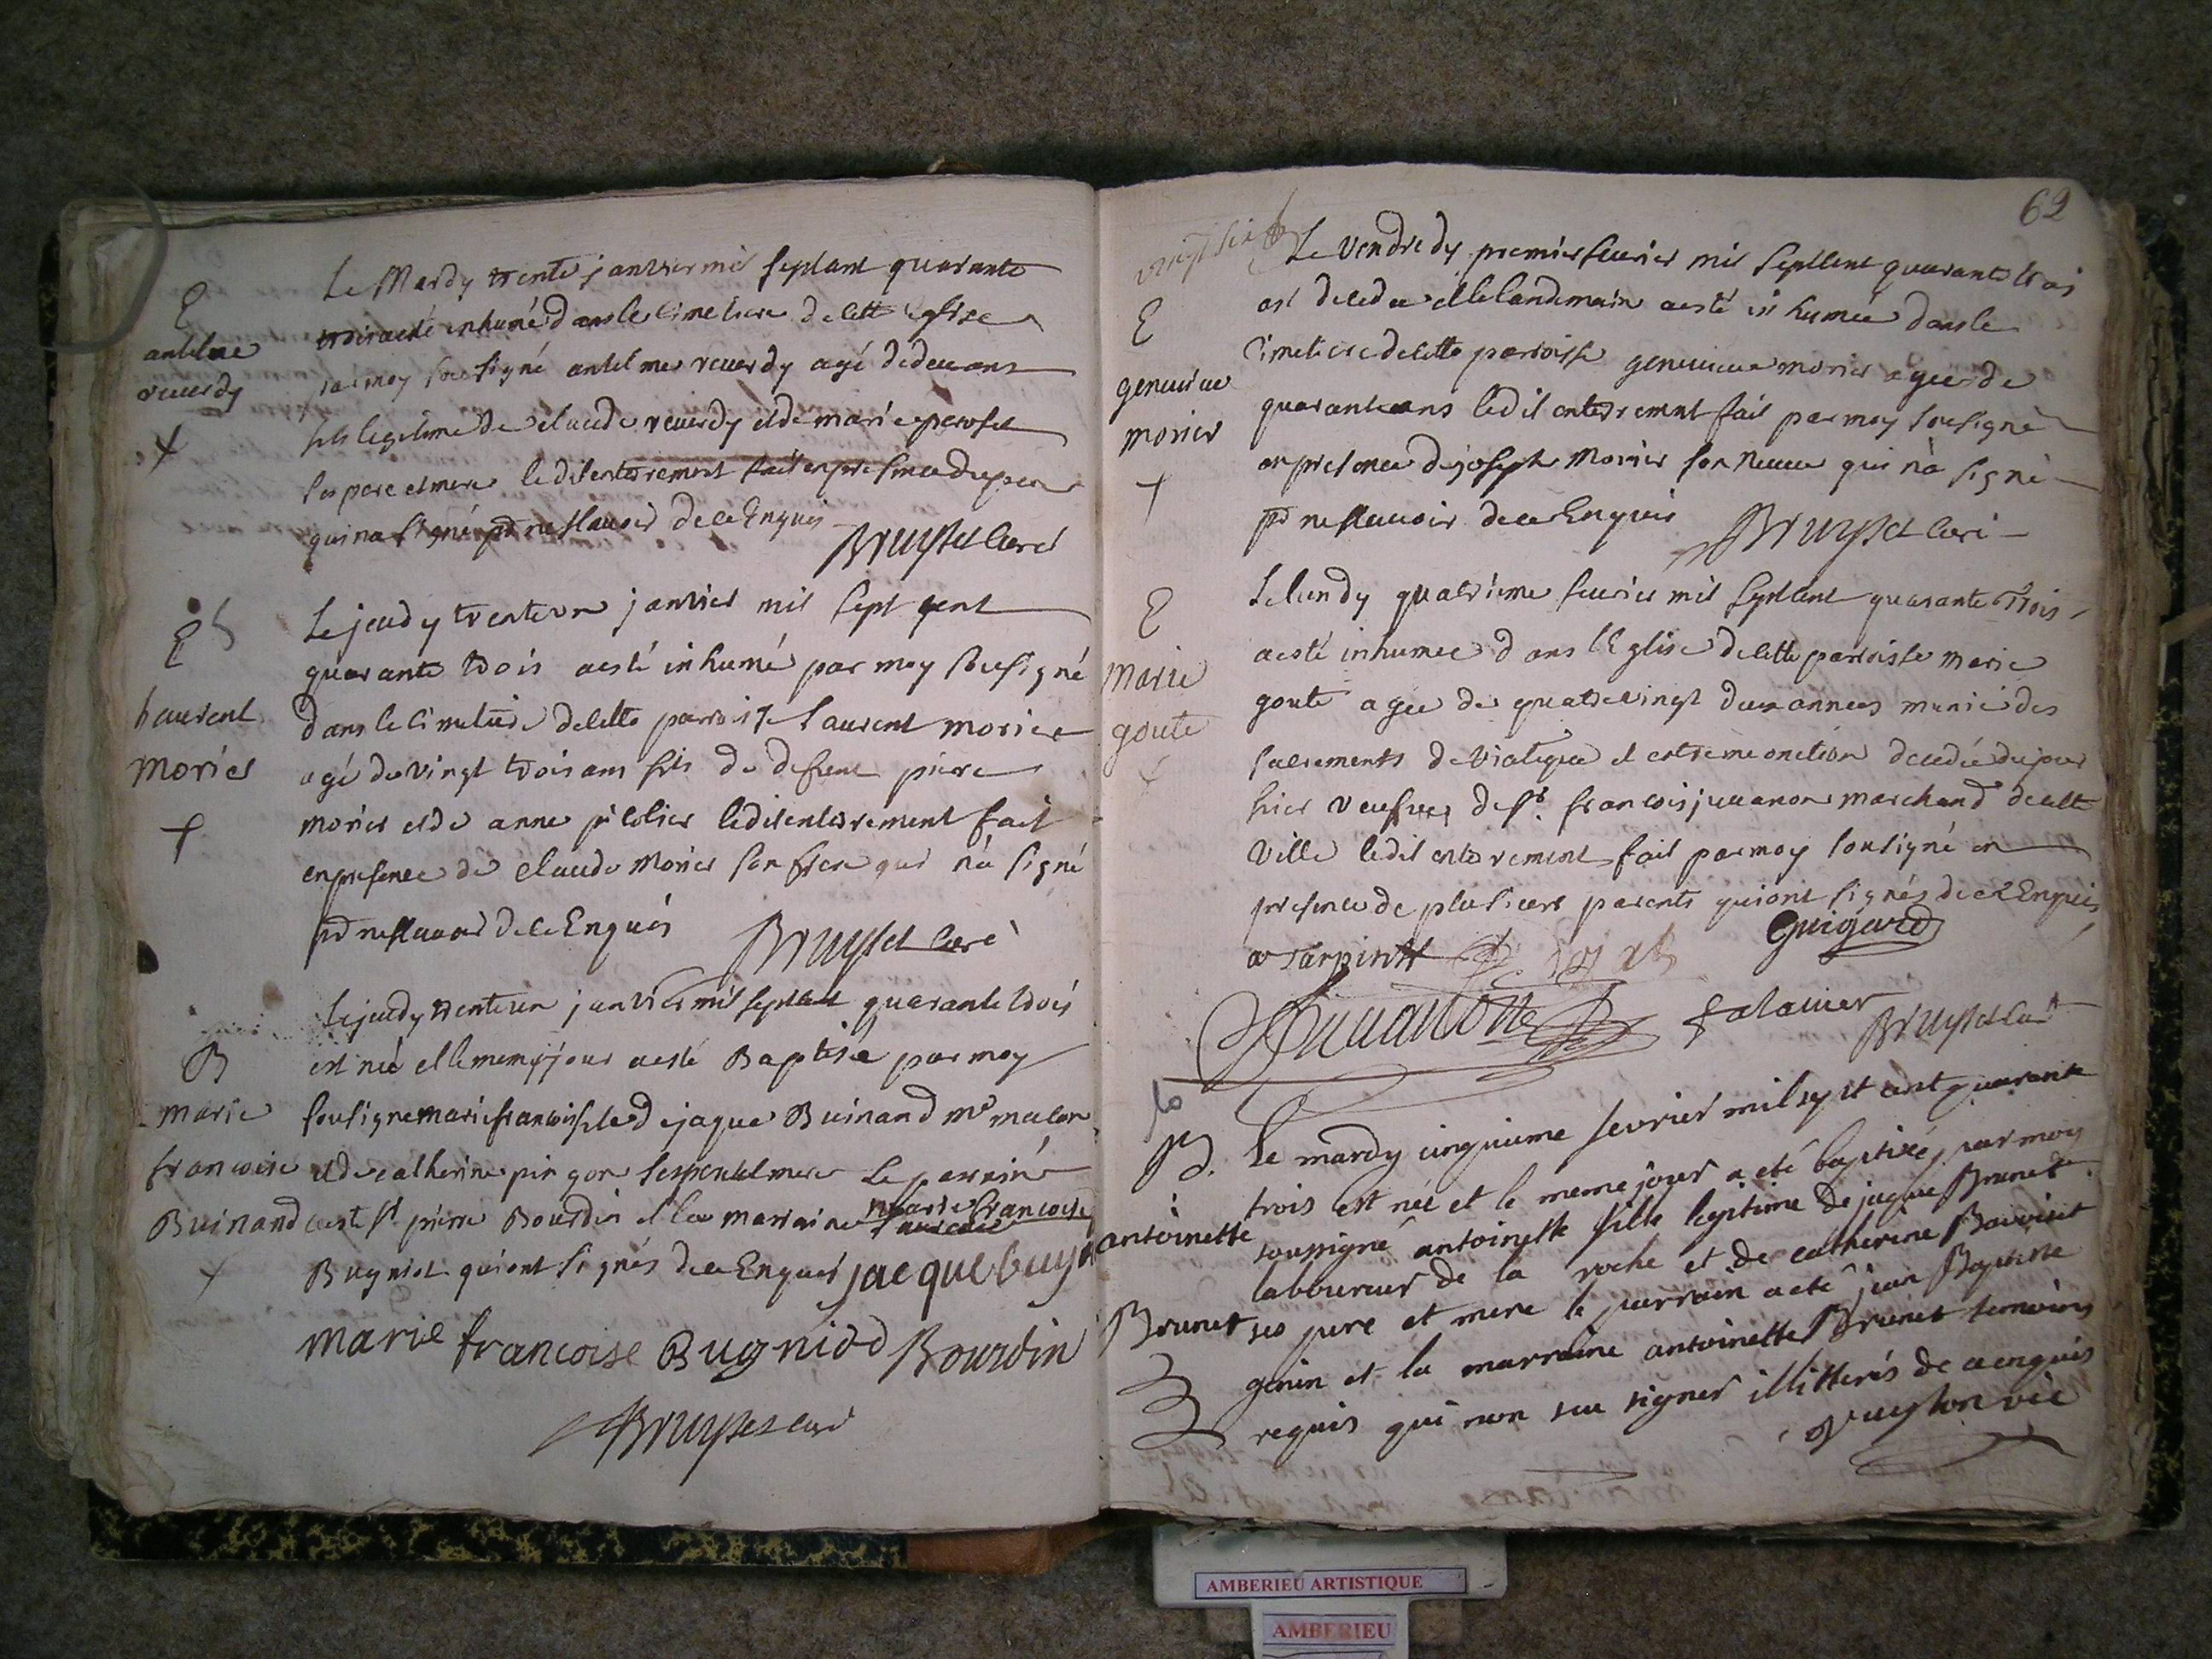 E
antelme
reuerdy
Le Mardy trente janvier mil septcent quarante
trois a esté inhumé dans le cimetiere de cette Eglise
par moy sousigné antelme reuerdy agé de deux ans
fils legitime de claude reuerdy et de marie perosel
ses pere et mere ledit enterrement fait en presence du pere
qui na signé pr ne scauoir de ce Enquis
Bruyset curé
E
laurent
morier
Le jeudy trente un janvier mil sept cent
quarante trois a esté inhumé par moy sousigné
dans le cimetiere de cette parroisse laurent morier
agé de vingt trois ans fils de defunt pierre
morier et de anne ledit enterrement fait
en presence de claude morier son frere qui n'a signé
pr ne scauoir de ce Enquis
Bruyset curé
B
marie
francoise
Buinand
Le jeudy trente un janvier mil septcent quarante trois
est née et le meme jour a esté Baptisée par moy
sousigné marie francoise fille de jaque Buinand me macon
et de catherine pingon ses pere et mere Le parrain
a esté sr pierre Bourdin et la marraine marie francoise
Bugniot qui ont signés de ce Enquis jacque buynand
marie francoise Bugniod Bourdin
Bruyset curé
62
vingt six
E
geneuieue
morier
Le Vendredy premier feurier mil septcent quarante trois
est decedee et le landemain a esté inhumée dans le
Cimetiere de cette parroisse geneuieue morier agee de
quarante ans ledit enterrement fait par moy sousigné
en presence de joseph Morier son neueu qui n'a signé
pr ne scauoir de ce Enquis
Bruyset curé
E
Marie
goute
Le lundy quatrieme feurier mil septcent quarante trois
a esté inhumee dans l'Eglise de cette parroisse marie
goute agee de quatre vingt deux annees munie des
sacrements de viatique et extreme onction decedée du jour
hier veufue de sr. francois juuanon marchand de cette
Ville ledit enterrement fait par moy sousigné en
presence de plusieurs parents qui ont signés de ce Enquis
Guigard
Juuanon
Bruyset curé
B.
antoinette
Brunet
Le mardy cinquieme fevrier mil sept cent quarante
trois est née et le meme jour a eté baptisée par moy
soussigné antoinette fille legitime de jaque Brunet
laboureur de la roche et de catherine Bavoiset
ses pere et mere le parrain a eté jean Baptiste
genin et la marraine antoinette Brunet temoins
requis qui n'on sceu signer illitterés de ce enquis
vic
AMBERIEU ARTISTIQUE
AMBERIEU